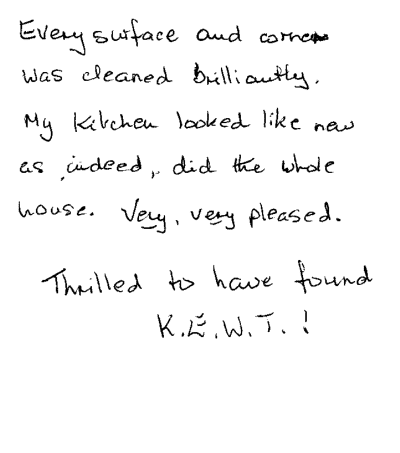 Every surface and corner
was cleaned brilliantly.
My kitchen looked like new
as indeed, did the whole
house. Very, very pleased.
Thrilled to have found
K.E.W.T. !